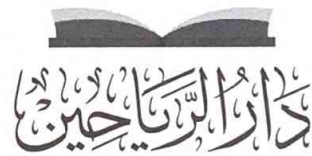 دَارُ الرَّيَاحِين